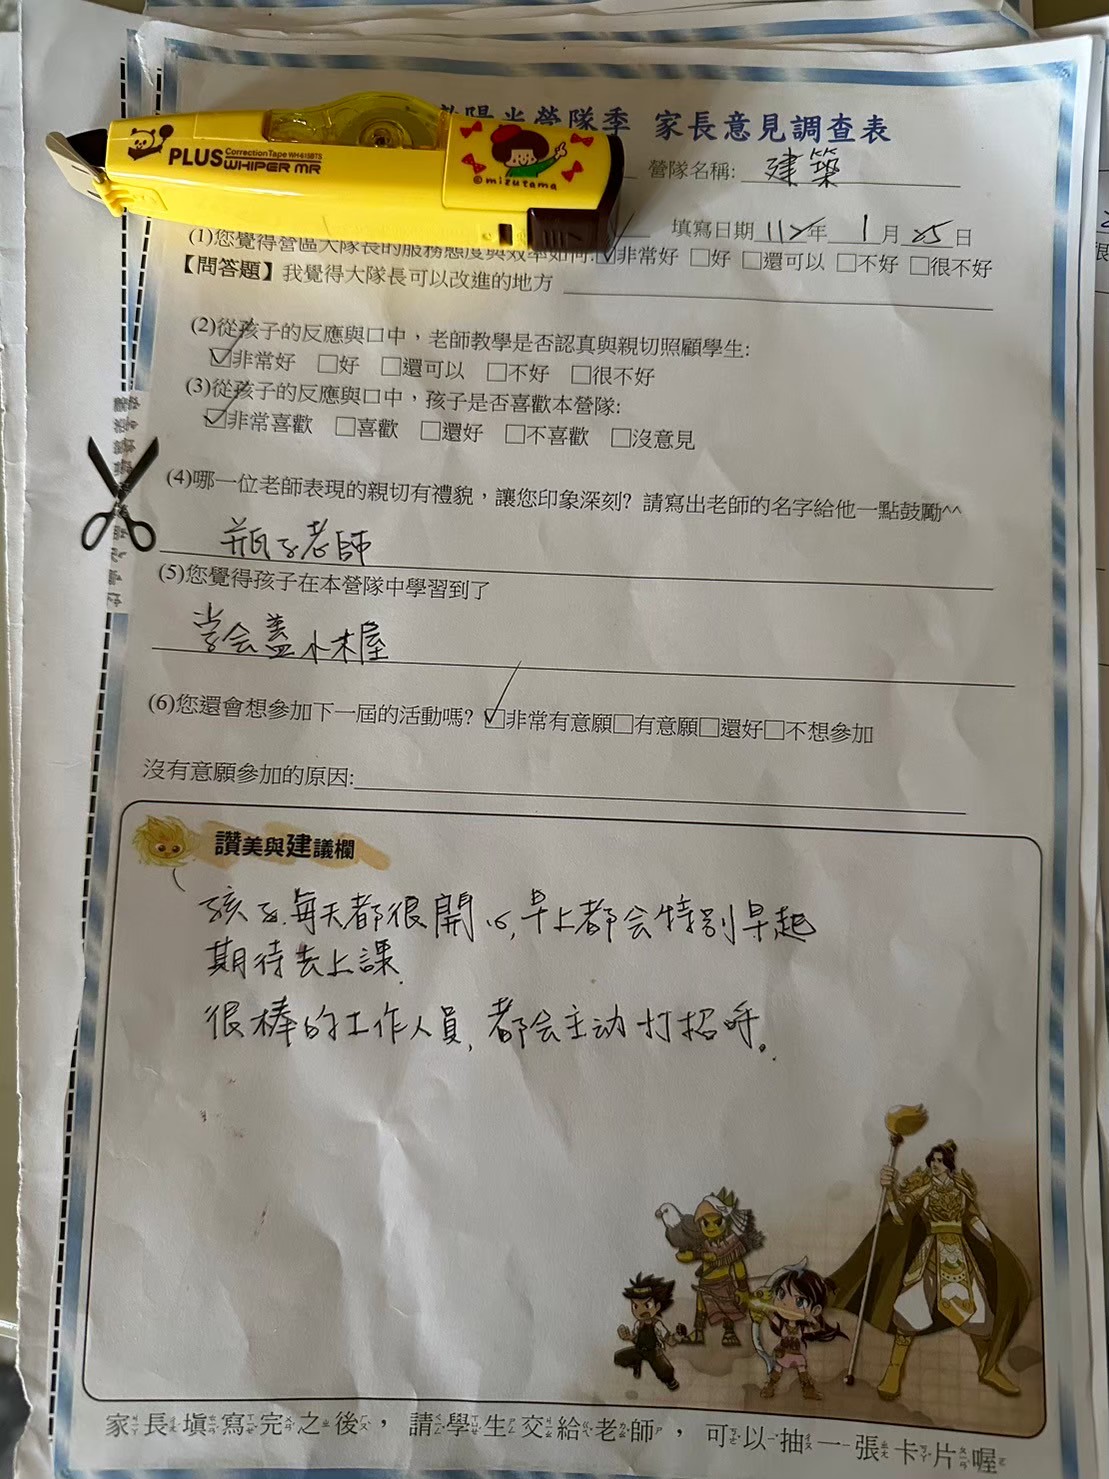 陽光營隊季 家長意見調查表
PLUS Correction Tape WH-615BTS
WHIPER MR
©mizutama
營隊名稱: 建築
填寫日期 112年 1月 25日
(1)您覺得營區大隊長的服務態度與效率如何:☑非常好 □好 □還可以 □不好 □很不好
【問答題】我覺得大隊長可以改進的地方
(2)從孩子的反應與口中，老師教學是否認真與親切照顧學生:
☑非常好 □好 □還可以 □不好 □很不好
(3)從孩子的反應與口中，孩子是否喜歡本營隊:
☑非常喜歡 □喜歡 □還好 □不喜歡 □沒意見
(4)哪一位老師表現的親切有禮貌，讓您印象深刻? 請寫出老師的名字給他一點鼓勵^^
瓶子老師
(5)您覺得孩子在本營隊中學習到了
学会蓋小木屋
(6)您還會想參加下一屆的活動嗎? ☑非常有意願□有意願□還好□不想參加
沒有意願參加的原因:
讚美與建議欄
孩子每天都很開心,早上都会特別早起
期待去上課.
很棒的工作人員,都会主动打招呼。
家長填寫完之後，請學生交給老師，可以抽一張卡片喔